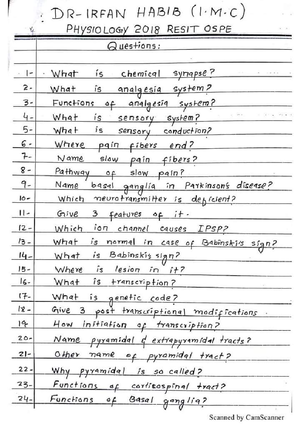 DR-IRFAN HABIB (I.M.C)
PHYSIOLOGY 2018 RESIT OSPE
Questions:
1- What is chemical synapse?
2- What is analgesia system?
3- Functions of analgesia system?
4- What is sensory system?
5- What is sensory conduction?
6- Where pain fibers end?
7- Name slow pain fibers?
8- Pathway of slow pain?
9- Name basal ganglia in Parkinson's disease?
10- Which neurotransmitter is deficient?
11- Give 3 features of it.
12- Which ion channel causes IPSP?
13- What is normal in case of Babinski's sign?
14- What is Babinski's sign?
15- Where is lesion in it?
16- What is transcription?
17- What is genetic code?
18- Give 3 post transcriptional modifications
19- How initiation of transcription?
20- Name pyramidal & extrapyramidal tracts?
21- Other name of pyramidal tract?
22- Why pyramidal is so called?
23- Functions of corticospinal tract?
24- Functions of Basal ganglia?
Scanned by CamScanner